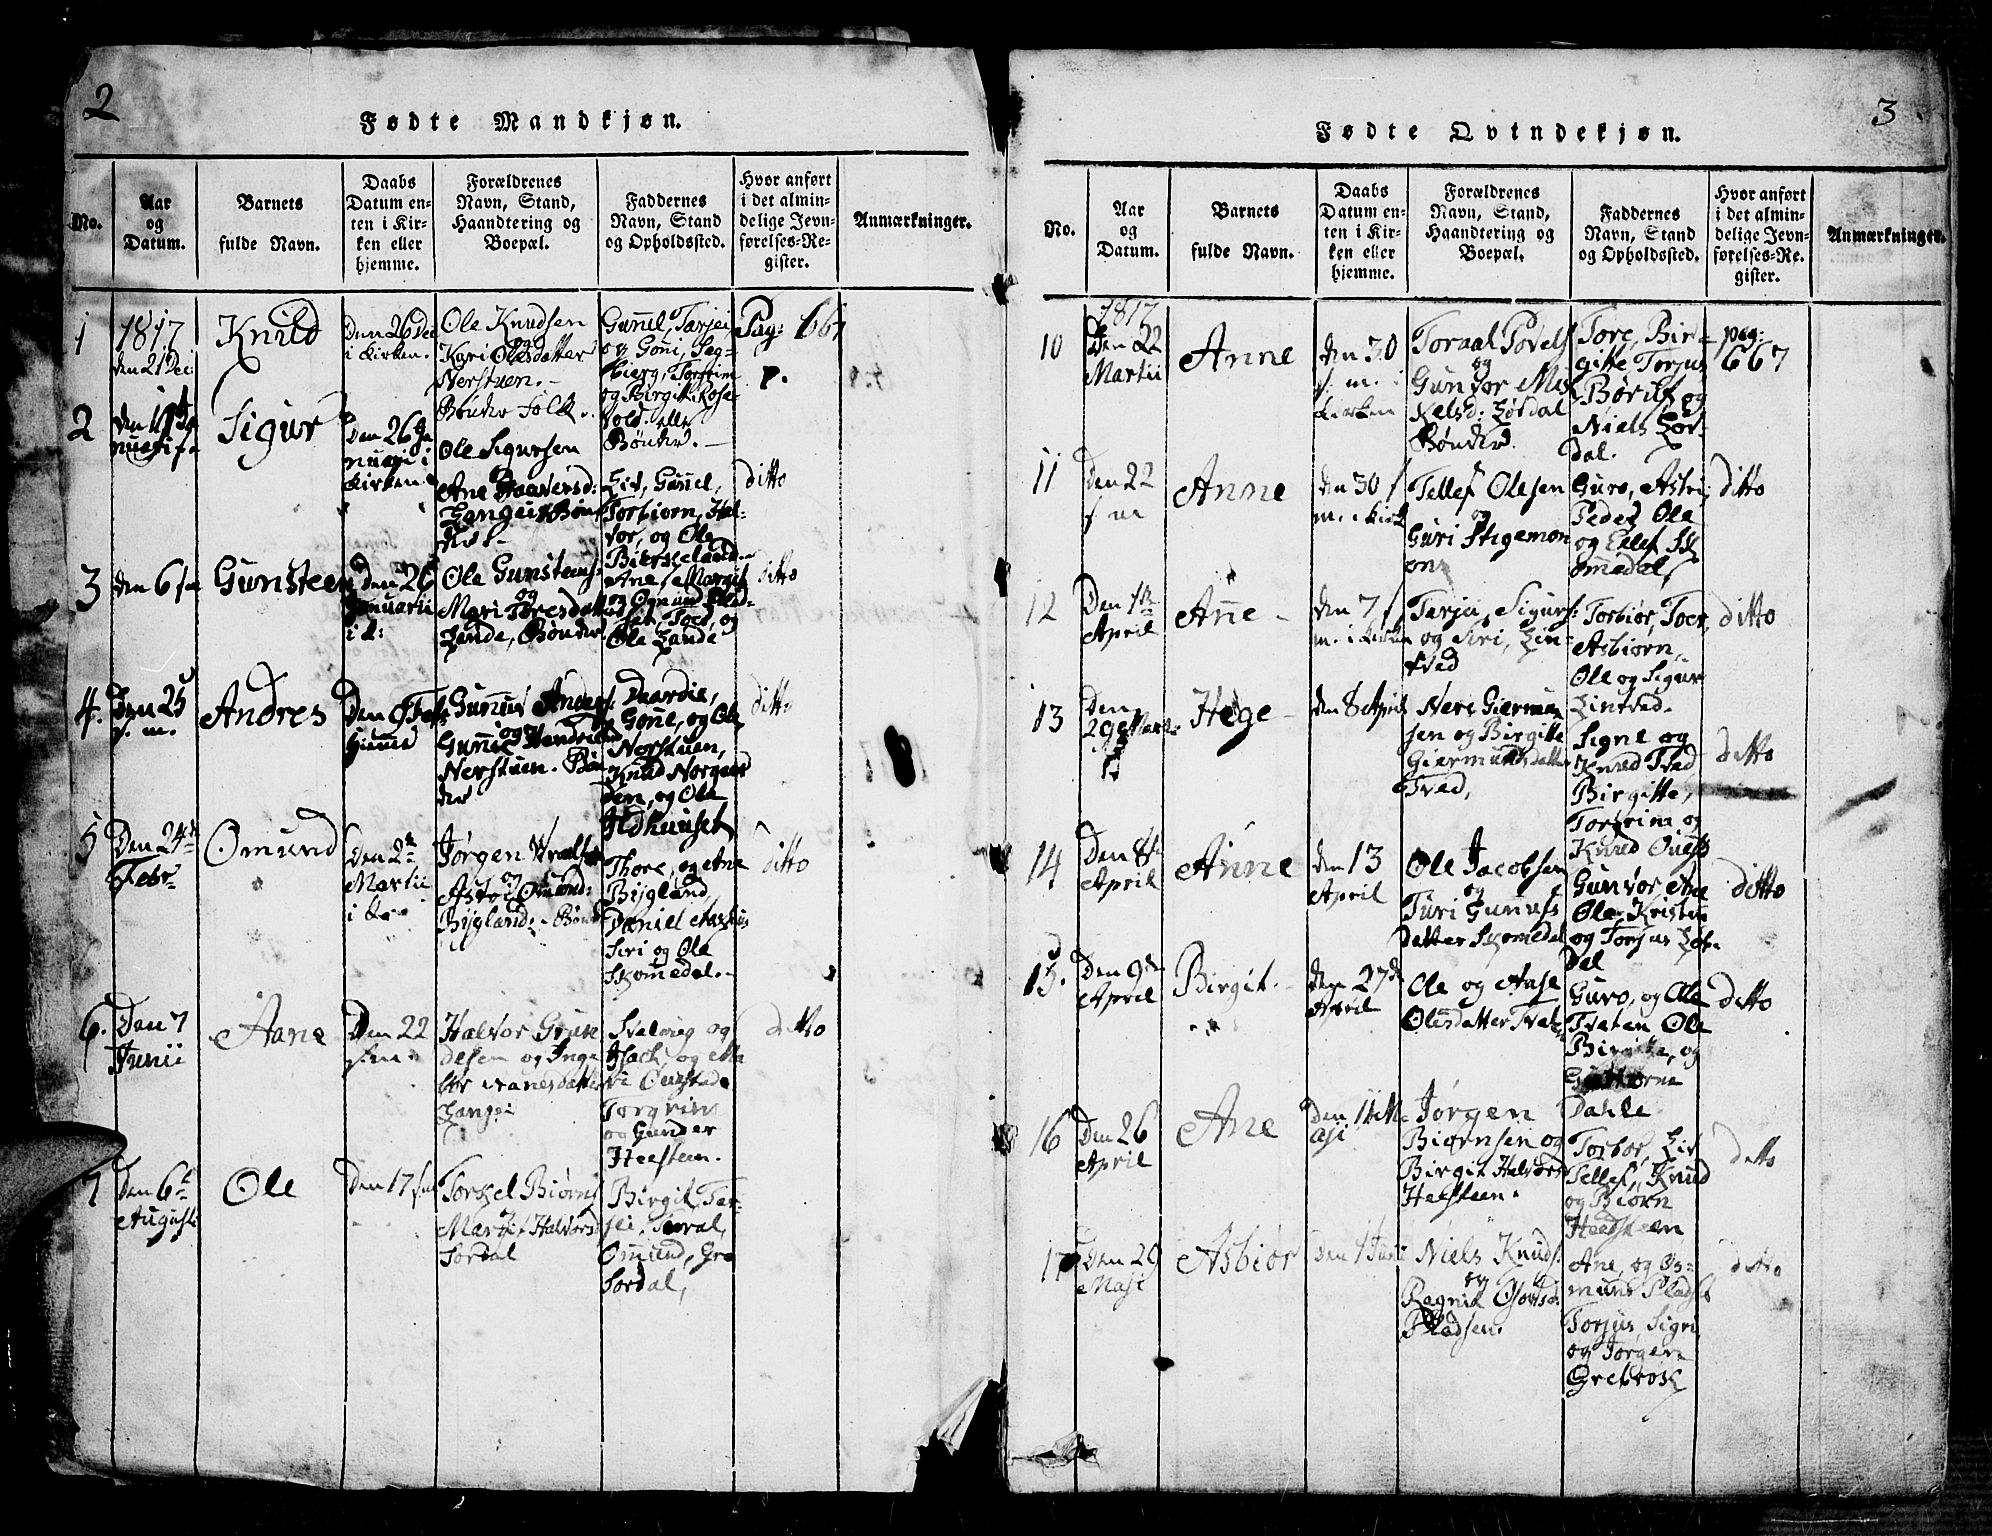 2
Fødte Mandkjøn.
No.
Aar
og
Datum.
Barnets
fulde Navn.
Daabs
Datum en-
ten i Kir-
ken eller
hjemme.
Forældrenes
Navn, Stand,
Haandtering og
Boepæl.
Faddernes
Navn, Stand
og Opholdssted.
Hvor anført
i det almin-
delige Jevn-
førelses-Re-
gister.
Anmærkninger.
1
1817
den 21 Dec
Knud
Den 26 Dec
i Kirken.
Ole Knudsen
og
Kari Olesdatter
Nerstuen.
Bønder Folk.
Gunnel, Tarjei,
og Goni, Sag-
bierg, Torgrim
og Birgit Rose-
vold. eller
Bønder.
Pag: 667
2
Sigur
Den 26 Ja
nuari i
Kirken
Ole Sigursen
og
Ane Haavorsd:
Langei Bøn
Liv, Gunnel,
Torbiorn, Hal-
vor, og Ole
Bierkeland.
ditto
3
den 6
Gunsteen
Den 26
Januarii
i K:
Ole Gunstens:
og
Mari Toresdatter
Lande, Bønder
Ane, Margit
og Ognund Flad-
set, Tore, og
Ole Lande
ditto
4.
Den 25
s. m.
Andres
Hjemme
Gunnuf Anders:
og
Nerstuen. Bøn
der
Daardie,
Gone, og Ole
Nerstuen,
Knud Norgaar
den, og Ole
Udhuuset
ditto
5
Den 24de
Febr
Omund
Den 2de
Martii
i K
Jørgen
og
Astri Omund:
Bygland. Bønd
Thore, og Ane
Bygland,
Daniel
Siri og Ole
Skomedal.
ditto
6.
Den 7
Junii
Aane
Den 22
s. m.
Halvor Grun
desen og Inge
Langei
Svalvig og
Torgrim
og Gunder
Heesteen.
ditto
7
Den 6te
Augusti
Ole
Den 17
Torkel Biørns
Margit Halvorsd
Sordal
Birgit, Tar-
jei, Toral,
Omund, Gro
Sordal,
3
Fødte Qvindekjøn.
No.
Aar
og
Datum.
Barnets
fulde Navn.
Daabs
Datum en-
ten i Kir-
ken eller
hjemme.
Forældrenes
Navn, Stand,
Haandtering og
Boepæl.
Faddernes
Navn, Stand
og Opholdssted.
Hvor anført
i det almin-
delige Jevn-
førelses-Re-
gister.
Anmærkninger.
10
1817
Den 22
Martii
Anne
den 30
s. m. i
Kirken
Toraal Povels
og
Gunvor Mi
kelsd: Lordal
Bønder
Tore, Bir-
gitte Torjus
Børilf og
Niels Lor-
dal.
pag:
667
11
Den 22
s m
Anne
den 30 s
m. i Kirk
Tellef Olesen
og
Guri Stigemon
Guro, Astri,
Peder Ole
og Ellef Sk
omedal
ditto
12
Den 1te
April
Anne
den 7 s
m. i Kirken
Tarjei, Sigurs:
og Siri, Lin-
tved
Torbior, Toer,
Asbiorn,
Ole og Sigur
Lintved.
ditto
13
Den
29 Marti
Hege
den 8 April
Nere Giermun
sen og Birgitte
Giermundsdatter
Tved,
Signe og
Knud Tved
Birgitte,
Torgrim og
Knud
ditto
14
Den 8de
April
Anne
den 13
April
Ole Jacobsen
og
Turi Gunufs
datter Skomedal
Gunvor Ane
Ole, Kristen
og Torjus Lor-
dal
ditto
15.
Den 9de
April
Birgit.
den 27de
April
Ole og Aase
Olesdatter Tvet
Guro, og Ole
Tveten Ole
Birgitte, og
Guttorm
Dahle
ditto
16
Den 26
April
Ane
den 11 M
aji
Jørgen
Biørnsen og
Birgit Halvors
Heesteen.
Torbor, Liv
Tellef, Knud
og Biorn
Heedsteen
ditto
17
Den 29
Maji
Asbior
den 1 Juni
Niels Knuds:
og
Ragnil
Pladsen.
Ane, og Os-
mund Pladsen
Torjus, Sigri
og Jorgen
Grebrok
ditto